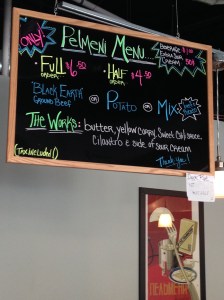 ONLY!
Pelmeni Menu...
Beverage $1.00
Extra Sour
Cream 50¢
Full $6.50
order
Half $4.50
order
Black Earth
Ground Beef
or
Potato
or
Mix
The Works:
butter, yellow curry, sweet chili sauce,
cilantro & side of sour cream
Thank you!
(Tax Included!)